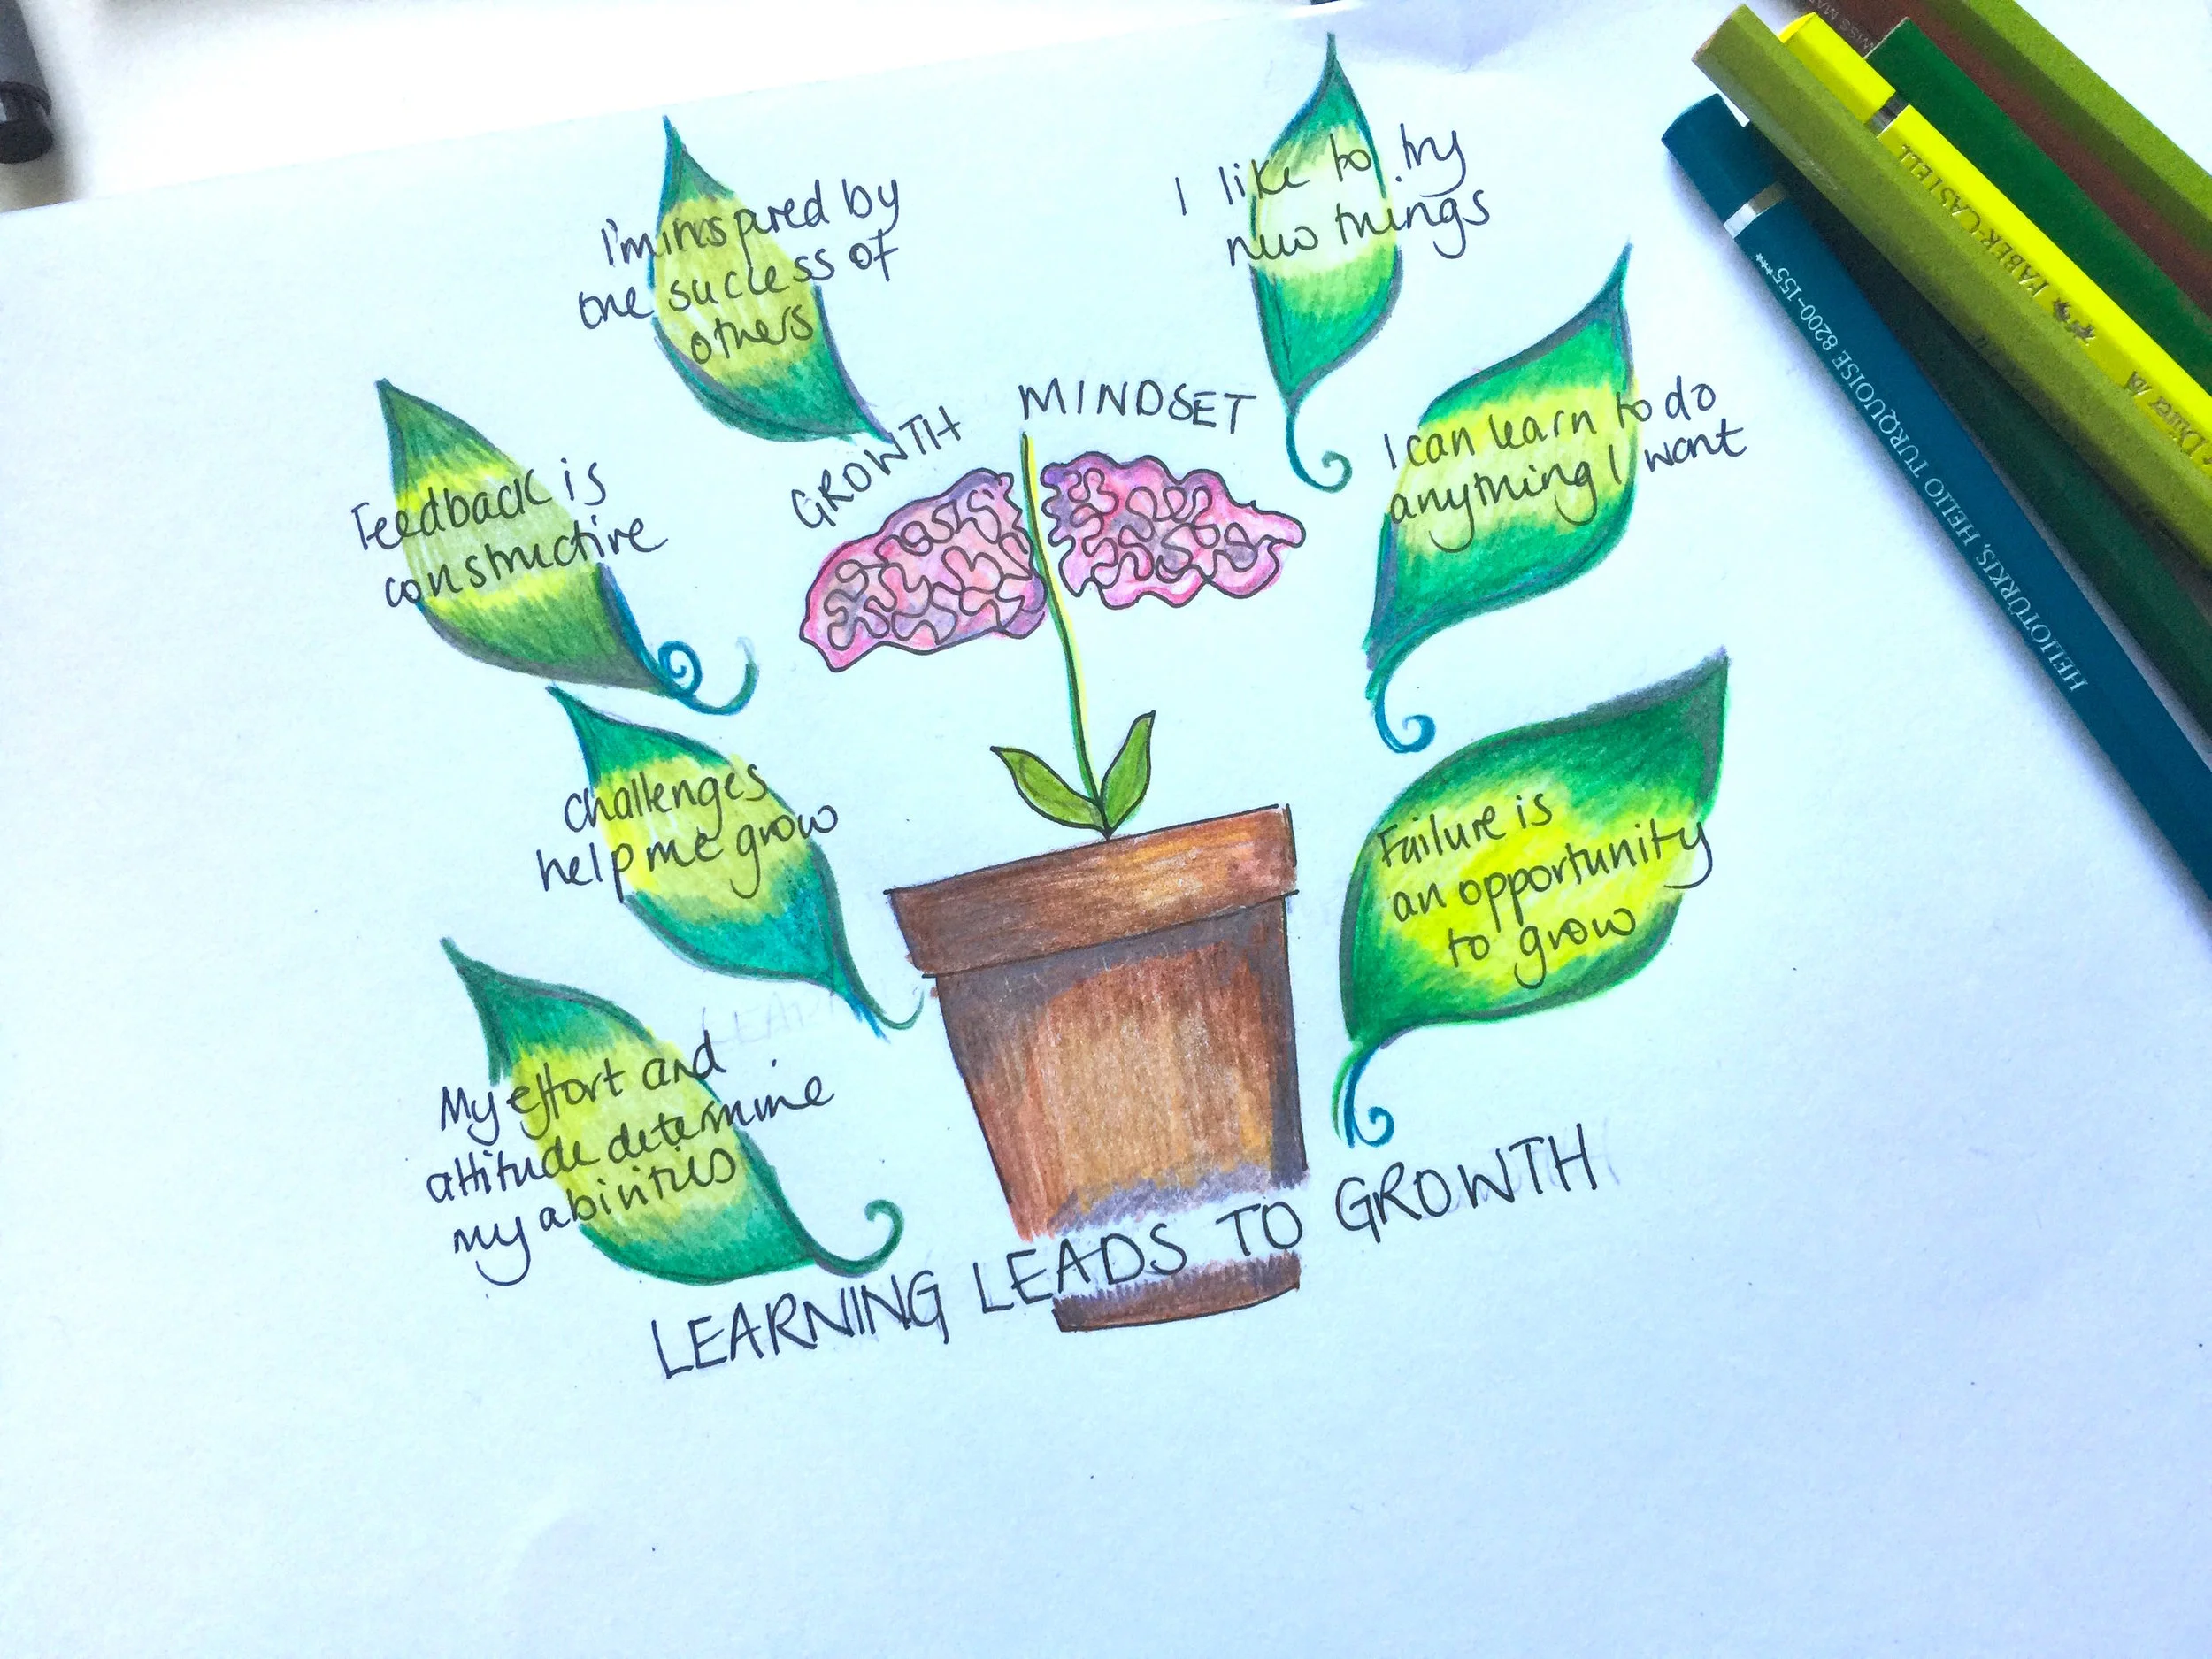 I'm inspired by
the success of
others
I like to try
new things
GROWTH MINDSET
Feedback is
constructive
I can learn to do
anything I want
challenges
help me grow
Failure is
an opportunity
to grow
My effort and
attitude determine
my abilities
LEARNING LEADS TO GROWTH
HELIOTÜRKIS, HELIO TURQUOISE 8200-155***
FABER-CASTELL